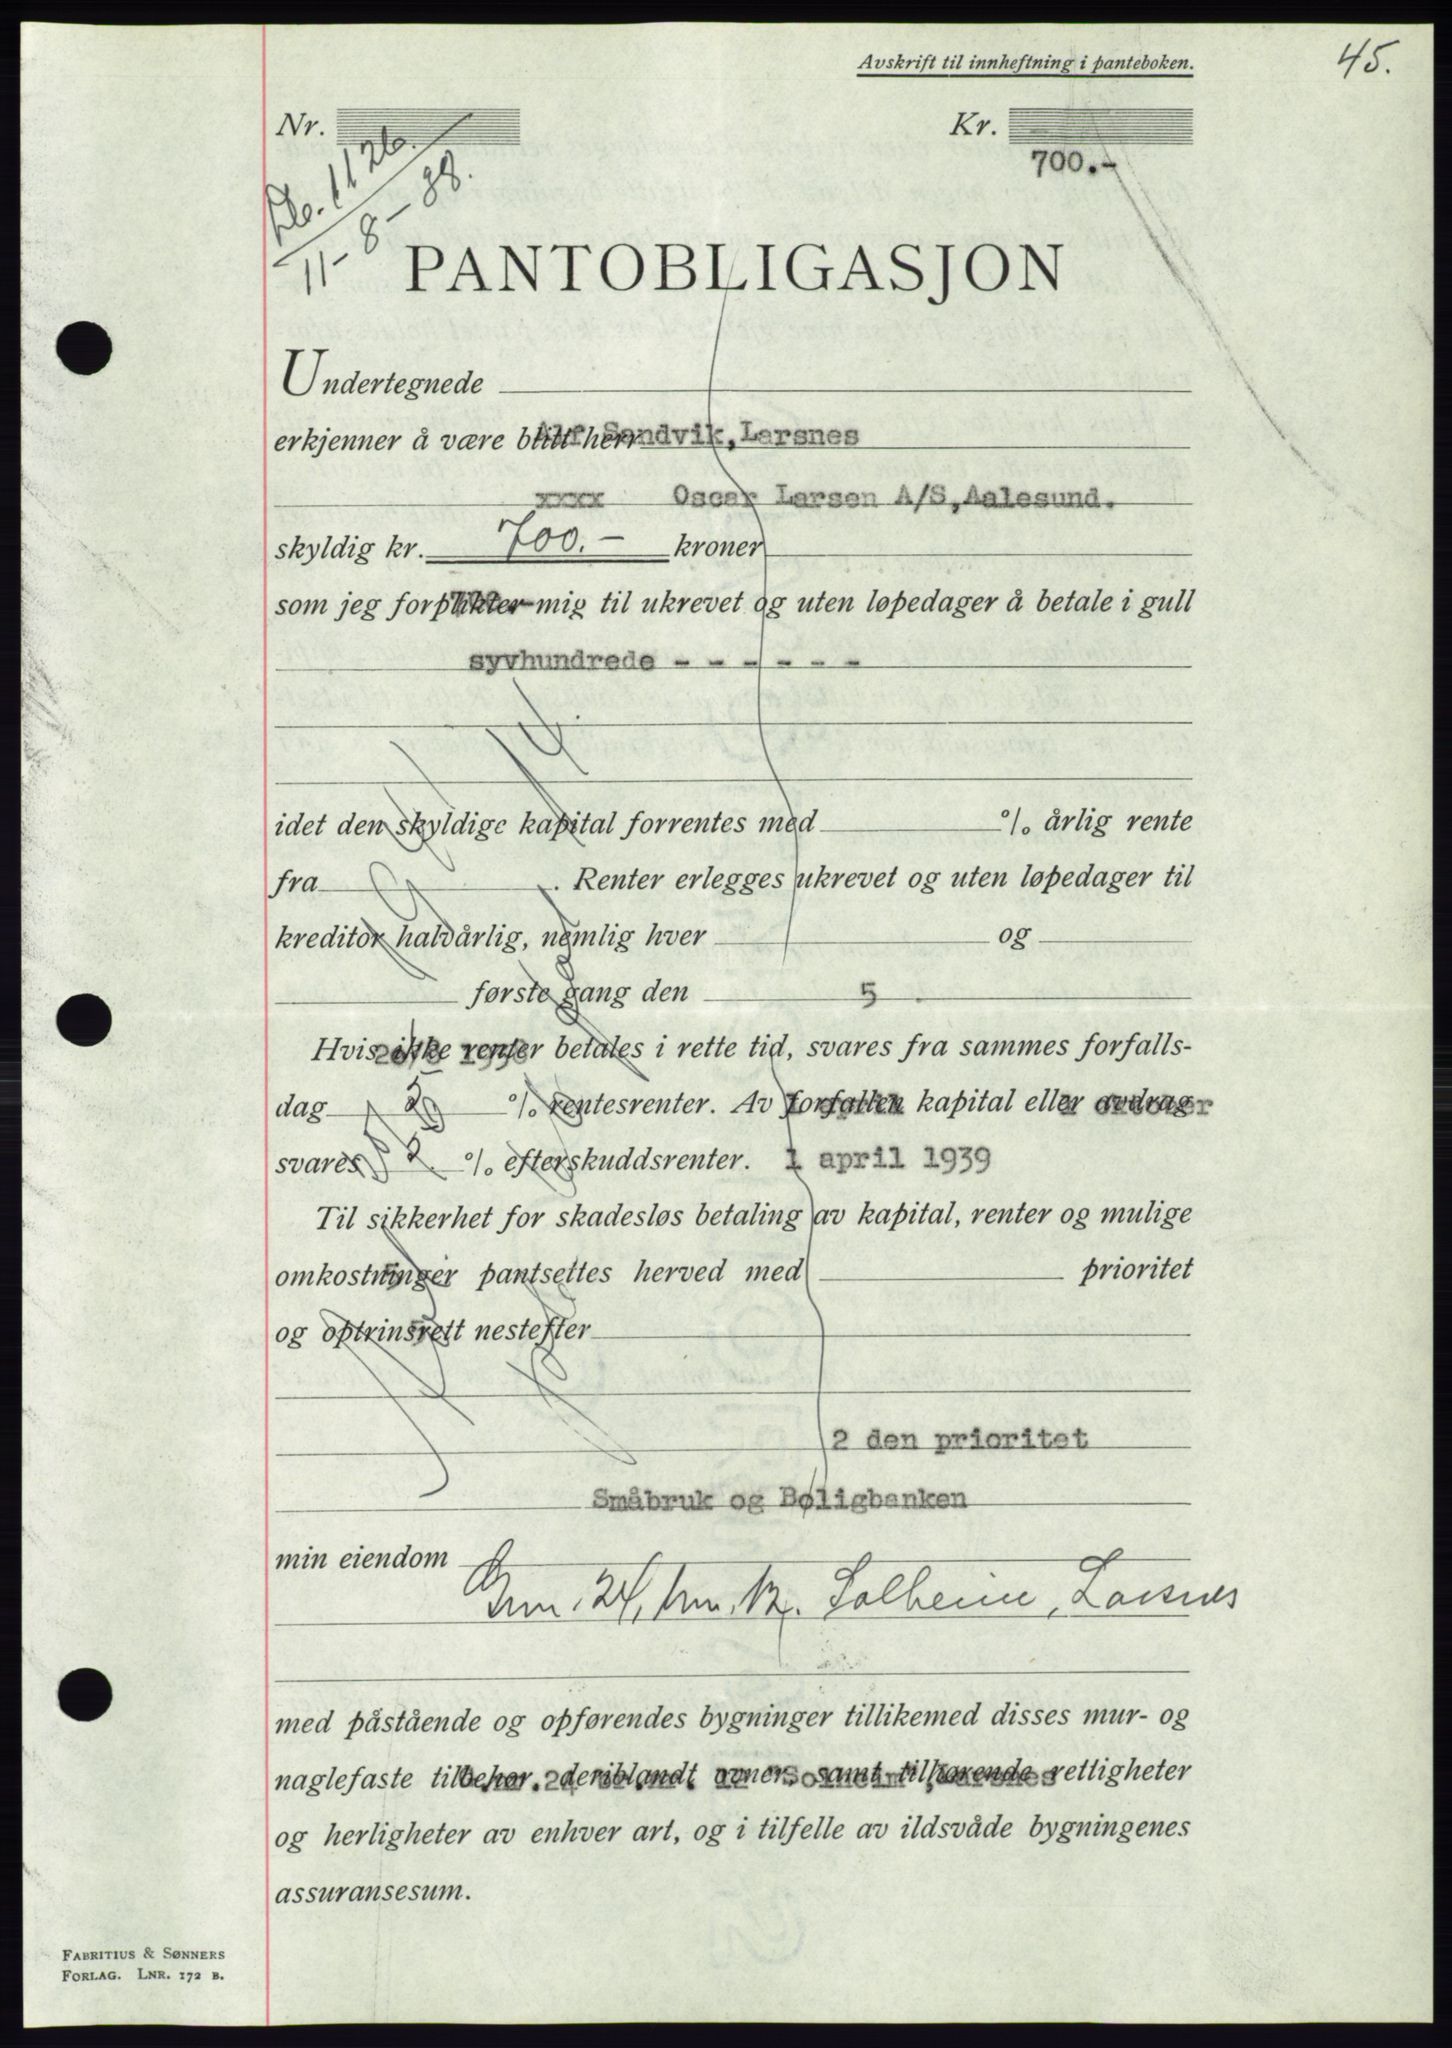 Avskrift til innheftning i panteboken.
45.
Nr. Kr.
1126.
700.-
11-8-38.
PANTOBLIGASJON
Undertegnede
erkjenner å være blitt herr Alf Sandvik, Larsnes
xxxx Oscar Larsen A/S, Aalesund.
skyldig kr. 700.- kroner
som jeg forplikter mig til ukrevet og uten løpedager å betale i gull
syvhundrede - - - - - -
idet den skyldige kapital forrentes med % årlig rente
fra . Renter erlegges ukrevet og uten løpedager til
kreditor halvårlig, nemlig hver og
første gang den 5 .
Hvis ikke renter betales i rette tid, svares fra sammes forfalls-
dag % rentesrenter. Av forfallen kapital eller avdrag
svares % efterskuddsrenter. 1 april 1939
Til sikkerhet for skadesløs betaling av kapital, renter og mulige
omkostninger pantsettes herved med prioritet
og optrinsrett nestefter
2 den prioritet
Småbruk og Boligbanken
min eiendom
Gnr. 24, bnr. 12. Solheim, Larsnes
med påstående og opførendes bygninger tillikemed disses mur- og
naglefaste tilbehør, deriblandt ovner, samt tilhørende rettigheter
og herligheter av enhver art, og i tilfelle av ildsvåde bygningenes
assuransesum.
FABRITIUS & SØNNERS
FORLAG. LNR. 172 B.